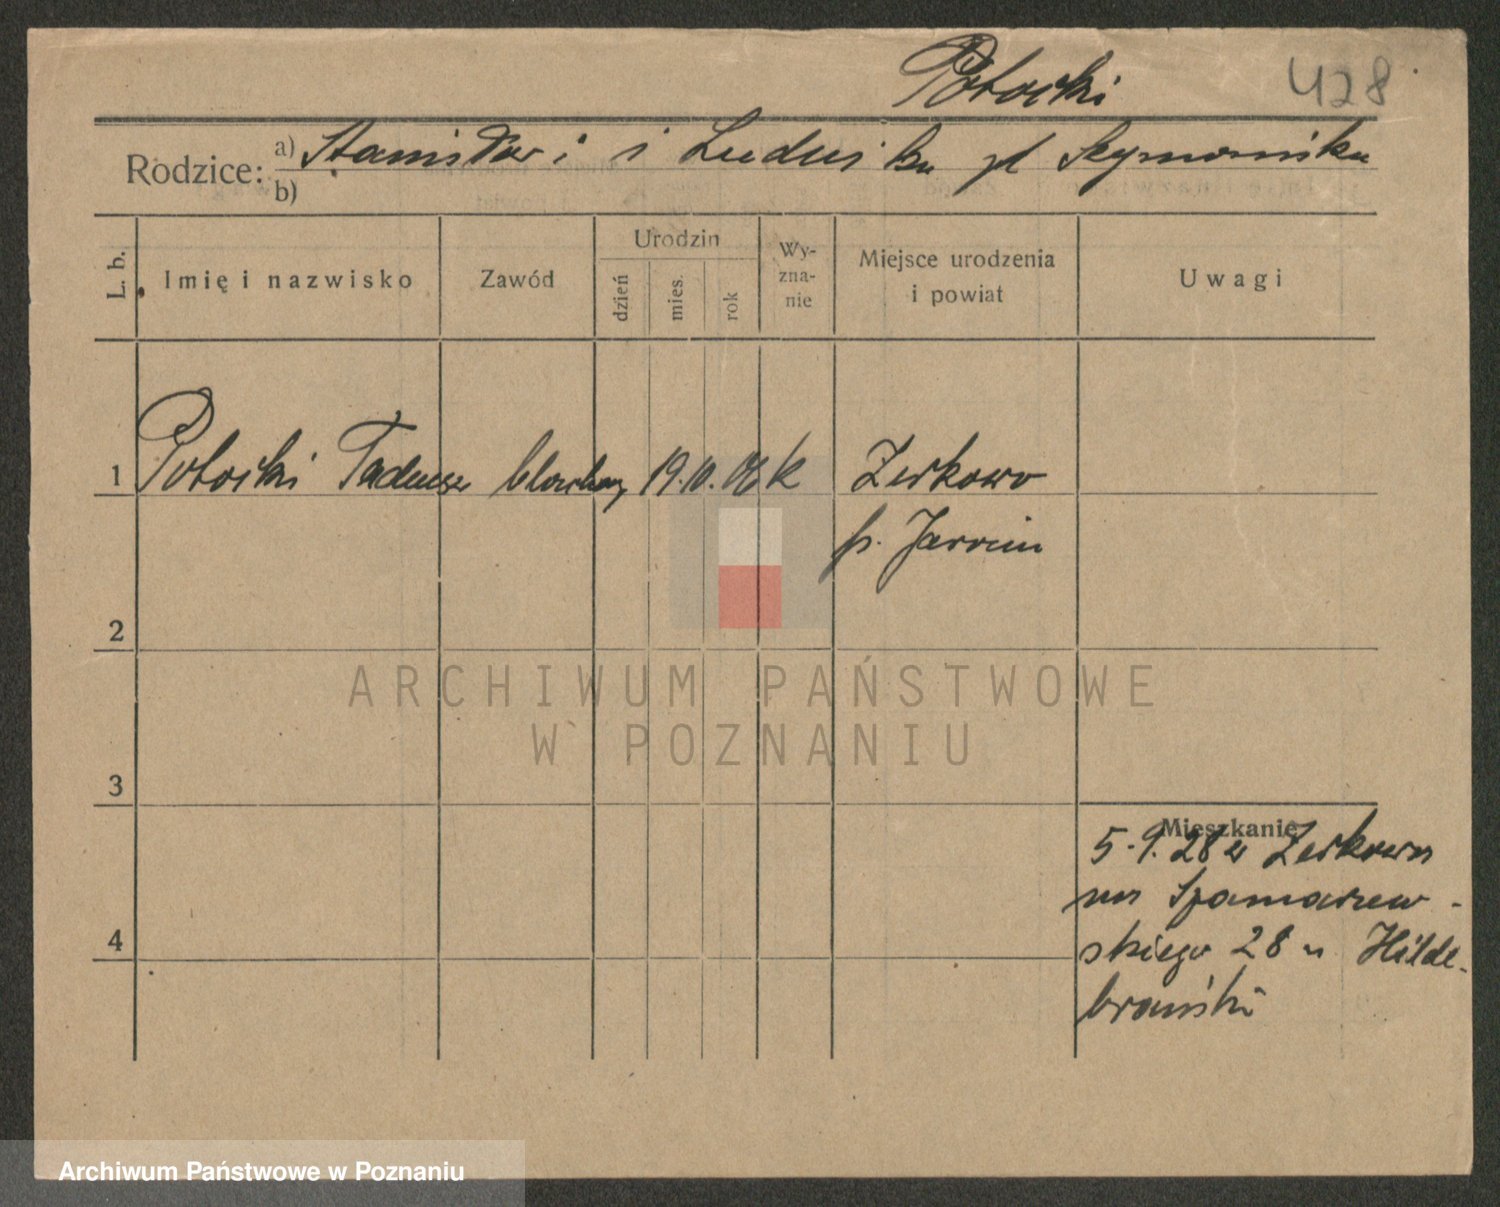 Potocki 428
Rodzice: a) Stanisław i Ludwika
b)
L. b. Imię i nazwisko Zawód Urodzin dzień mies. rok Wy-zna-nie Miejsce urodzenia i powiat Uwagi
1 Potocki Tadeusz 19.10. 06 k Zerkowo
p. Jarocin
2
ARCHIWUM PAŃSTWOWE
W POZNANIU
3
Mieszkanie
5.9.28 z Zerkowa
28 u Hilde-
4
Archiwum Państwowe w Poznaniu